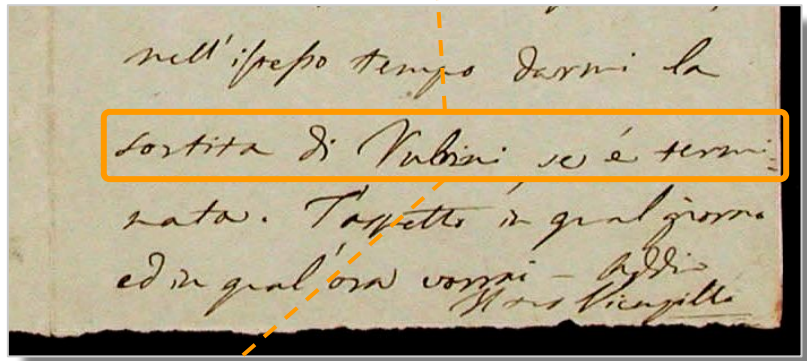 nell'istesso tempo darmi la
sortita di Rubini se é termi=
nata. T'aspetto in qual giorno
ed in qual'ora vorrai – Addio